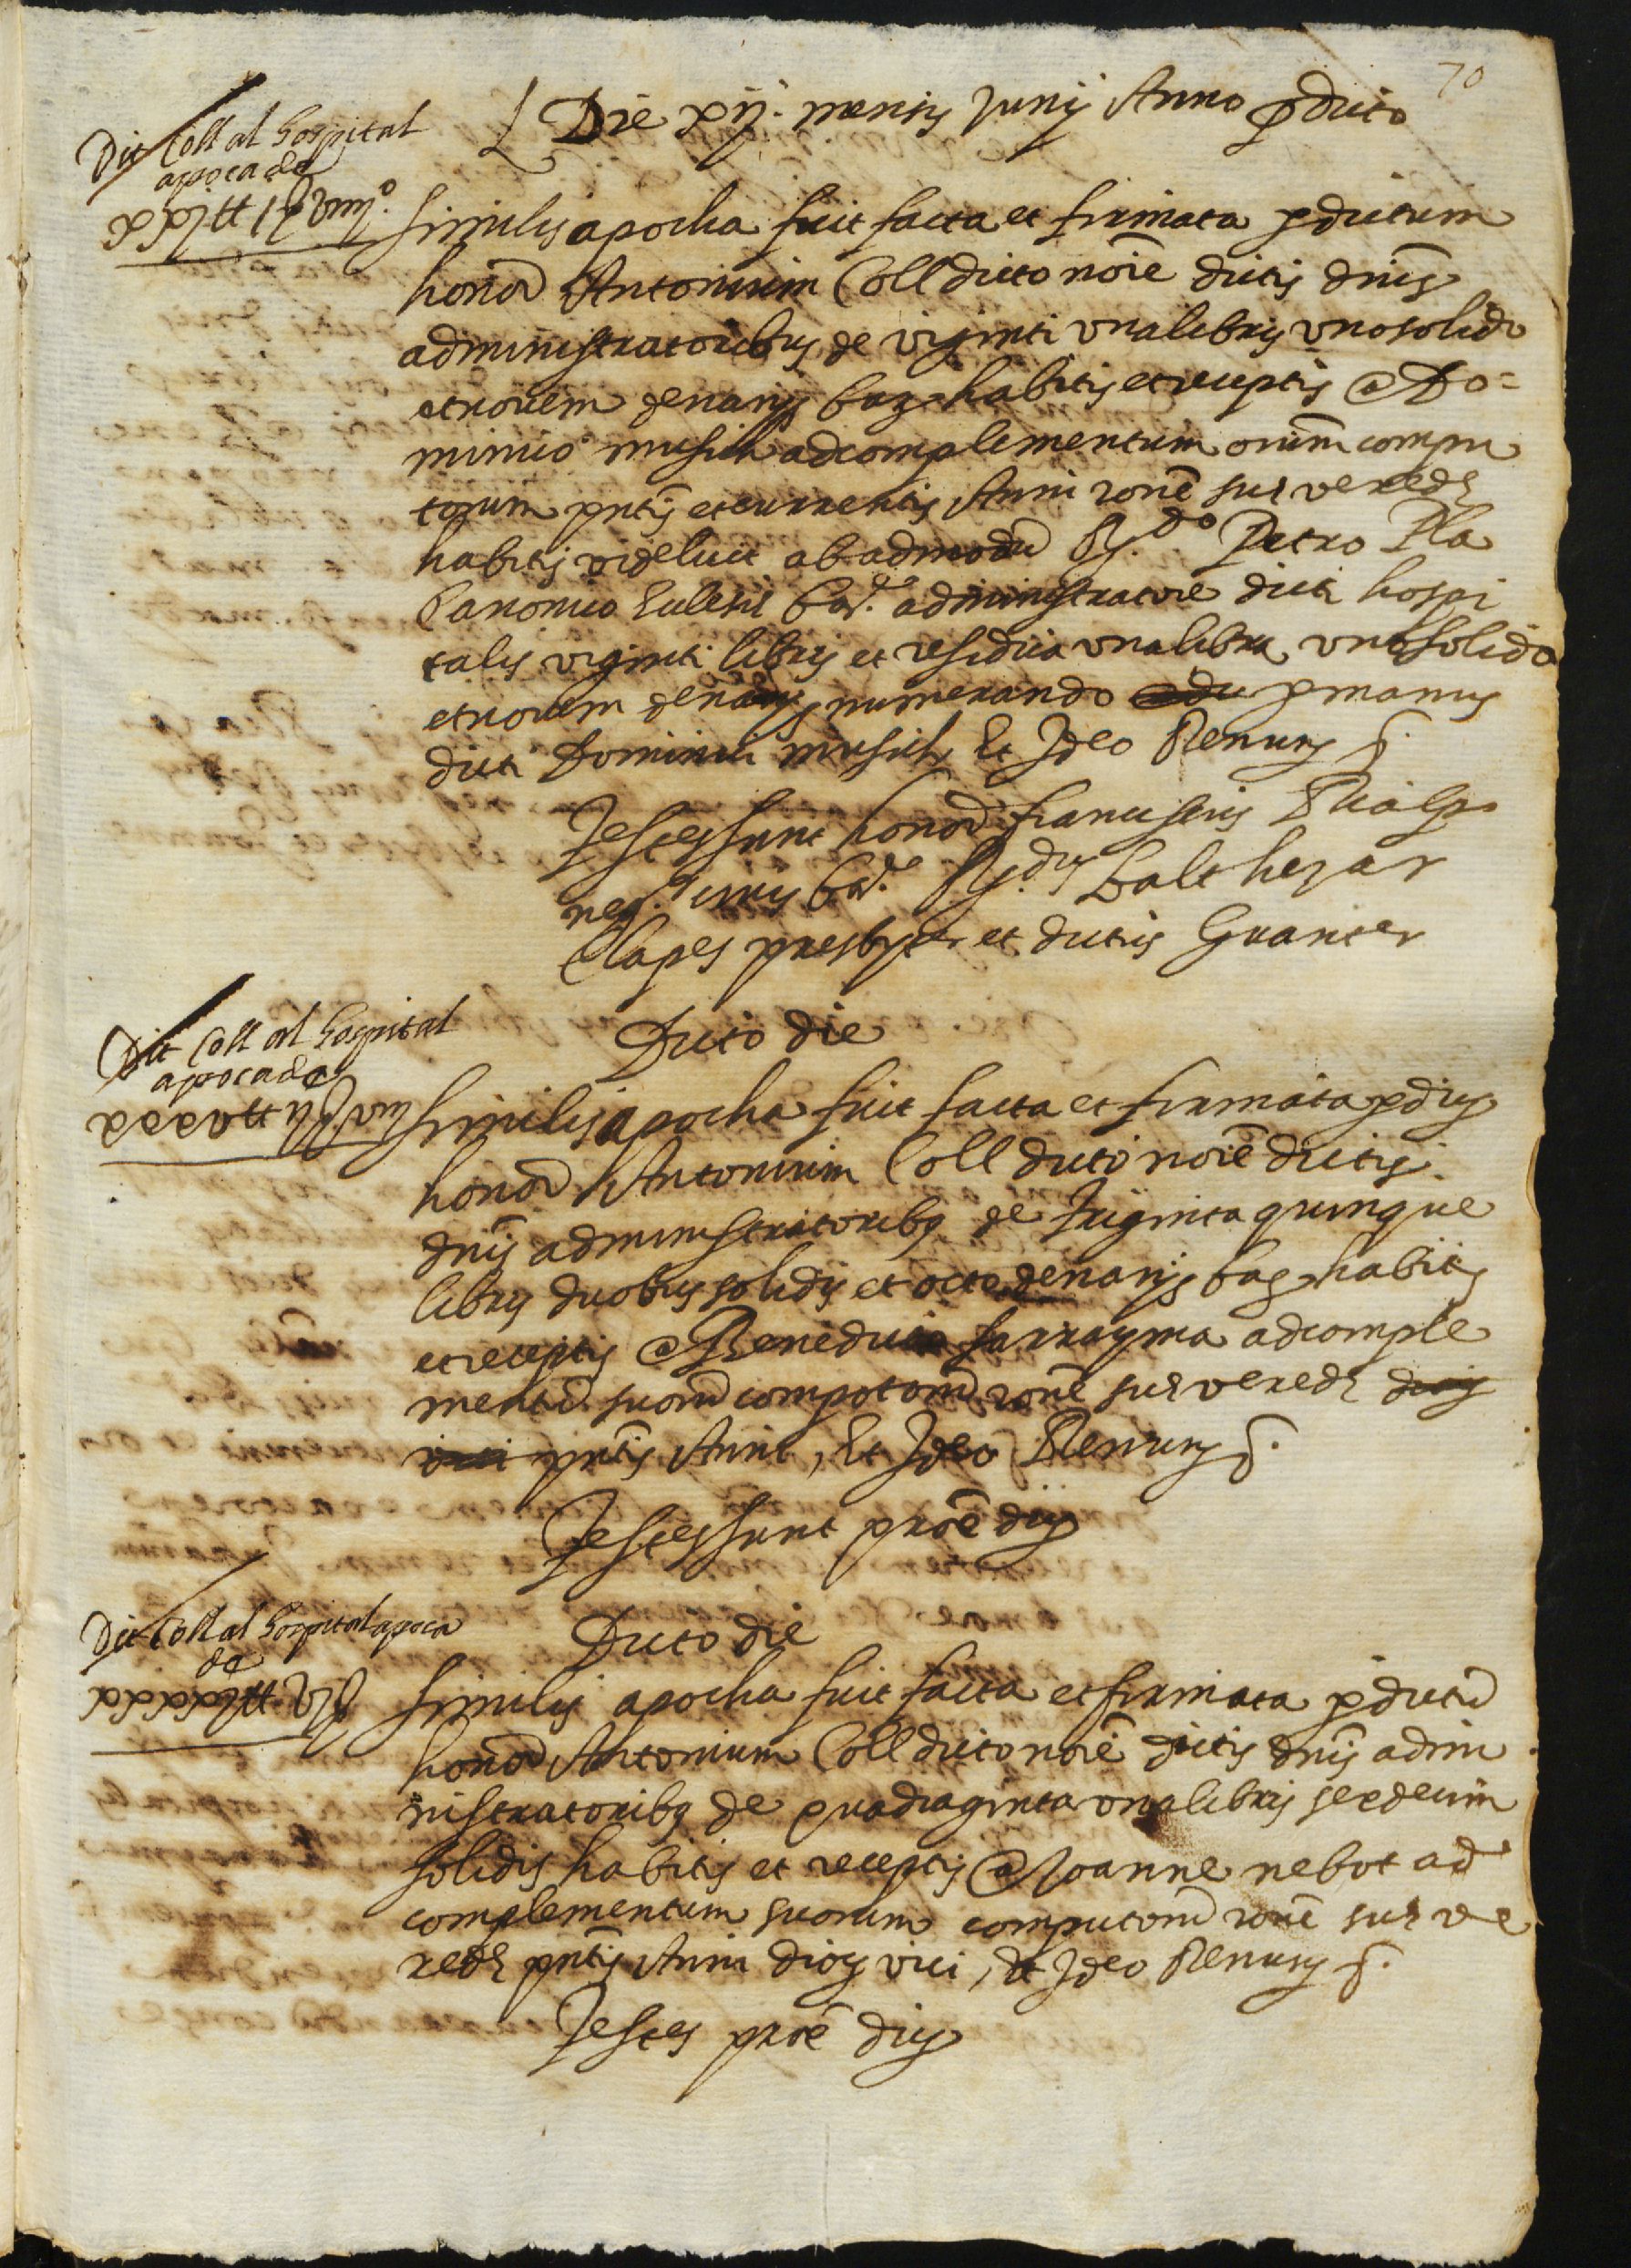 70
Die xij. mensis Junij Anno pdicto
Dit Coll al hospital
apoca de
xxj tt 1 ß viiij.º
Similis apocha fuit facta et firmata p dictum
honor Antonium Coll dicto noie dictis dnis
administratoribus de viginti vna libris vno solido
et novem denarijs bar. habitis et receptis a Do=
minico musich ad complementum oium compu
torum pntis et currentis Anni rone sue verede
habitis videlicet ab admodu R.do Petro Pla
Canonico Eclesie bar. administratore dicti hospi
talis viginti libris et residua vna libra vno solido
et novem denarijs numerando p manus
dicti Dominici musich Et Ideo Renuns &.
Testes sunt honor franciscus Rialp
neg. civis bar. R.dus Balthezar
Clapes presbyter et dictus Granter
Dit Coll al hospital
apoca de
xxxv tt ij ß viij
Dicto die
Similis apocha fuit facta et firmata p dig
honor Antonium Coll dicto noie dictis
dnis administratoribq de triginta quinque
libris duobus solidis et octo denarijs bar. habitis
et receptis a Benedicto sarrayma ad comple
mentu suoru compotoru rone sue verede
pntis Anni, Et Ideo Renuns &.
Testes sunt proe dig
Dit Coll al hospital apoca
de
xxxxj tt xvj ß
Dicto die
Similis apocha fuit facta et firmata p dictu
honor Antonium Coll dicto noie dictis dnis admi
nistratoribq de quadraginta vna libris sexdecim
solidis habitis et receptis a Joanne nebot ad
complementum suorum computoru rone sue ve
rede pntis Anni diog vici, Et Ideo Renuns &.
Testes proe dig